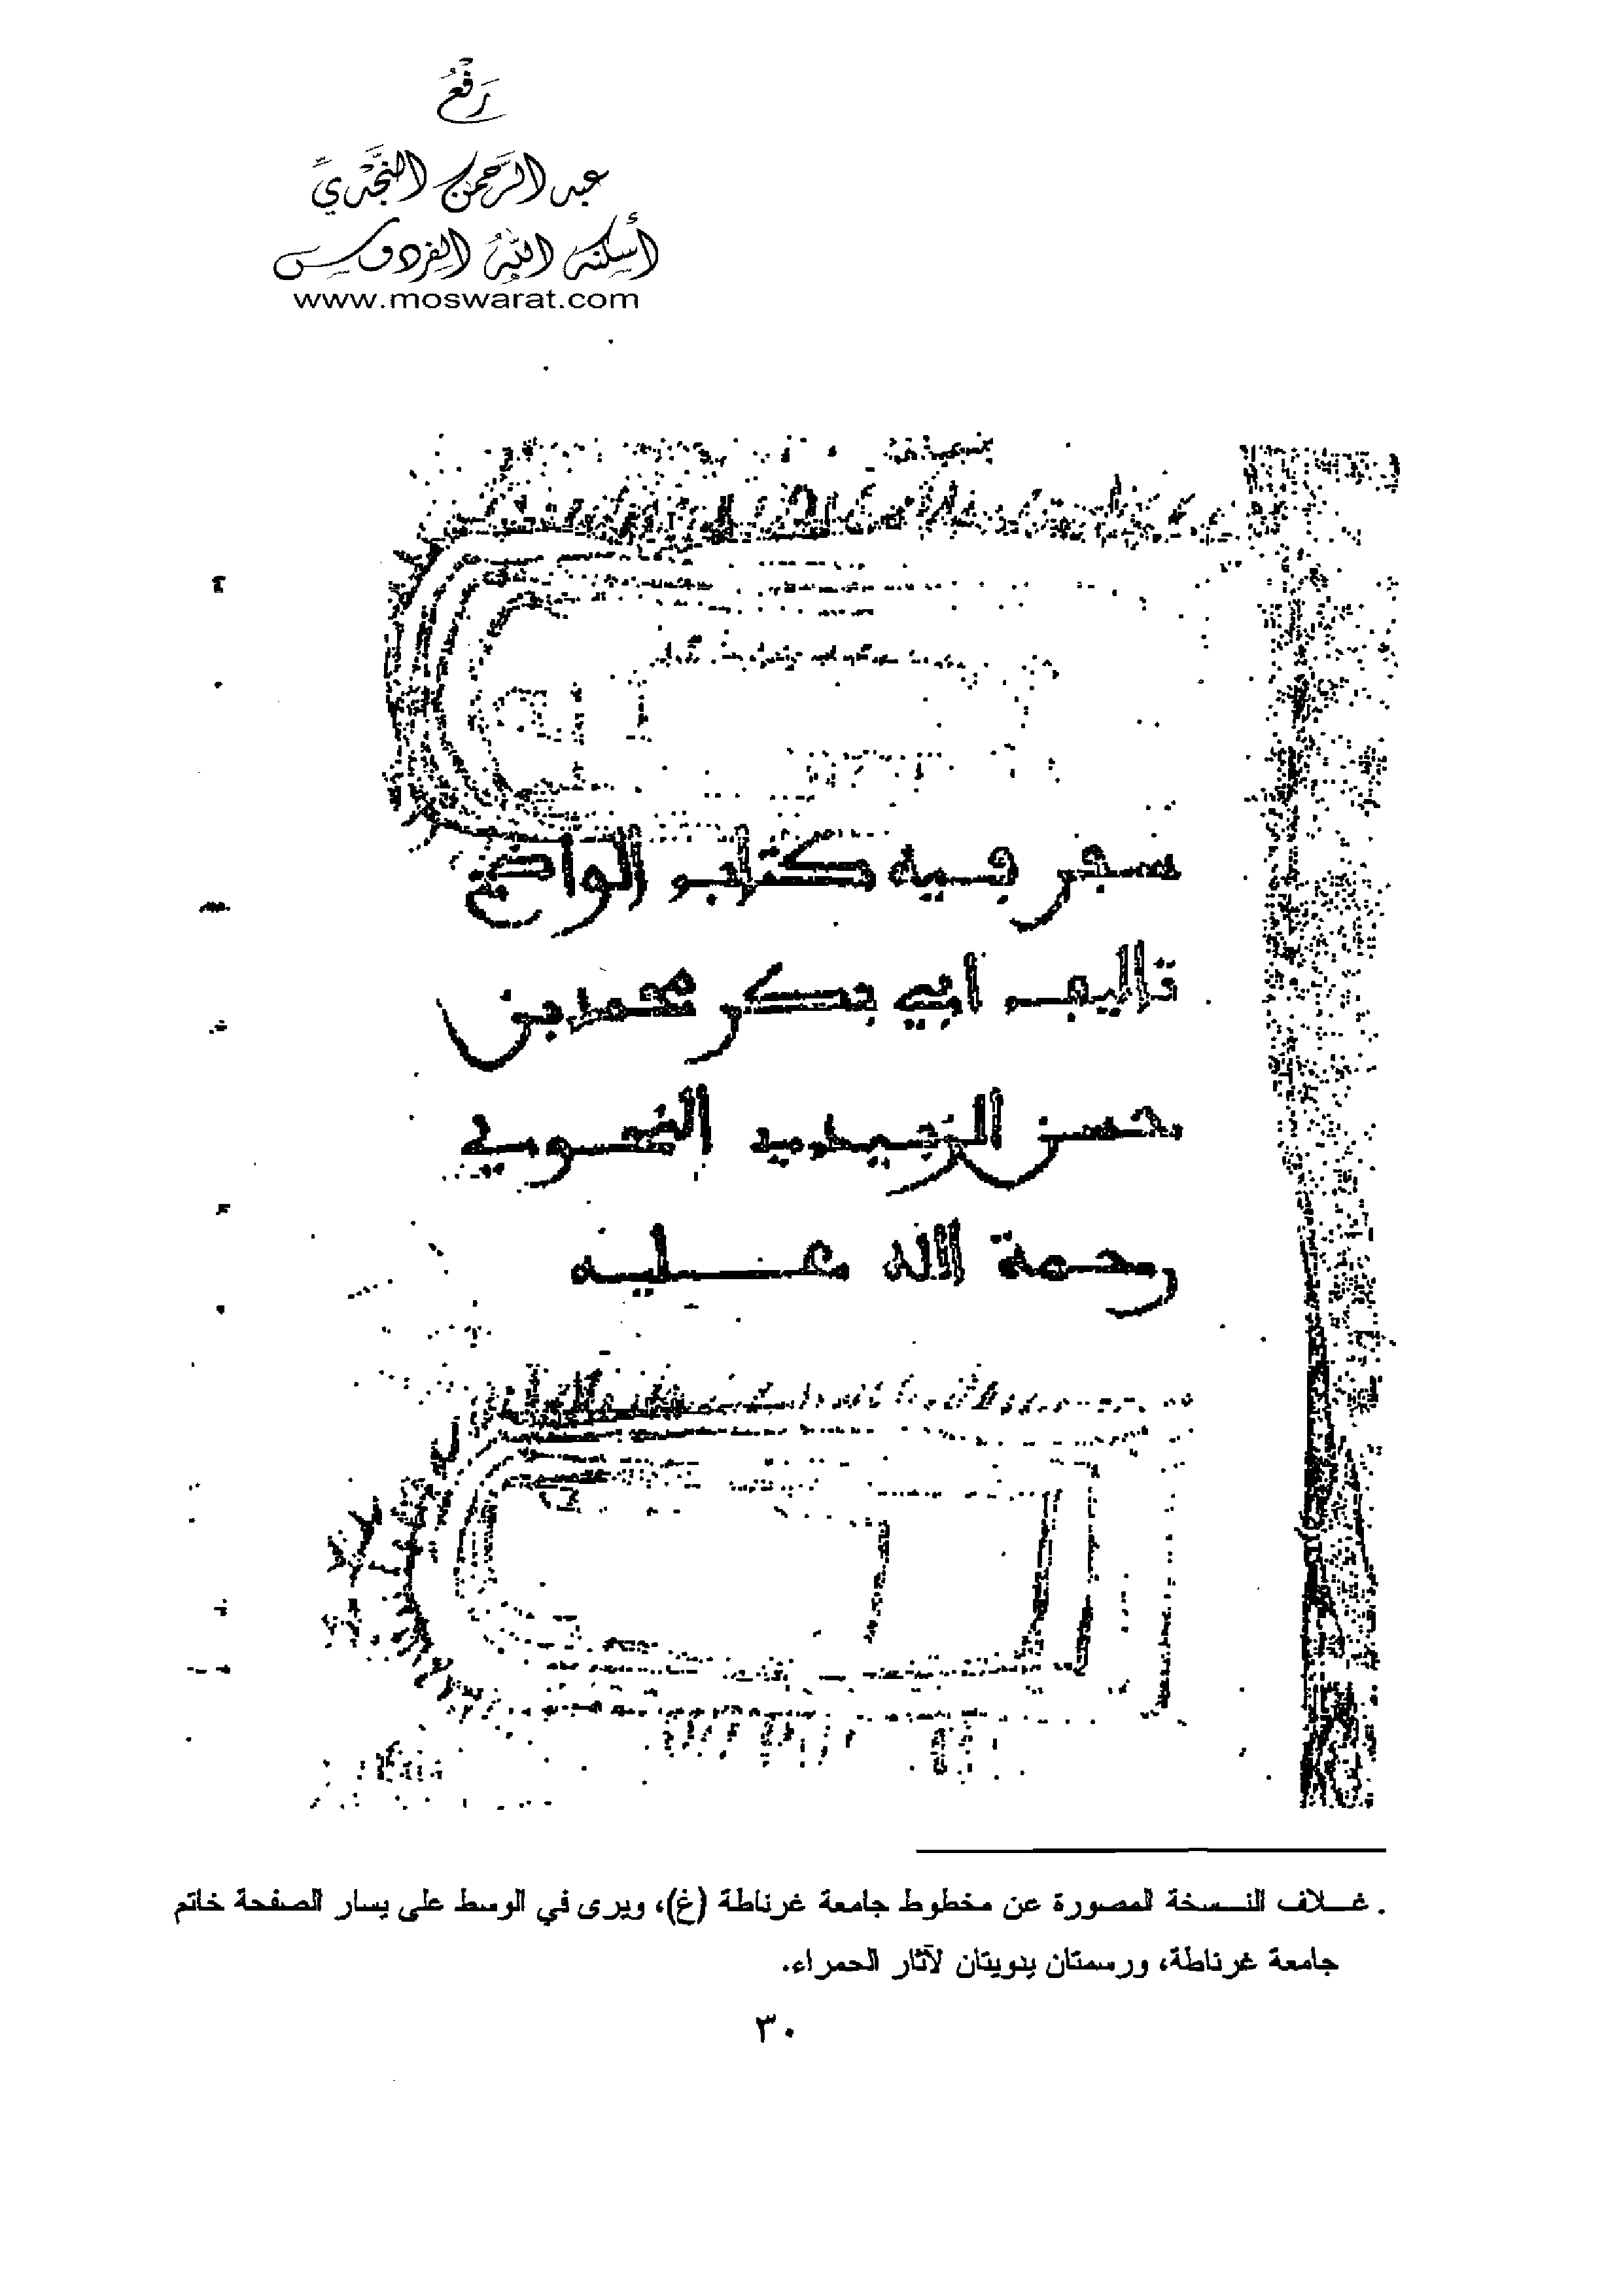 رَفْعُ
عبد الرَّحمن النَّجْديِّ
أسكنه اللهُ الفردوس
www.moswarat.com
سفر فيه كتاب الواضح
تاليف أبي بكر محمد بن
حسن الزبيدي النحوي
رحمة الله عليه
. غـلاف النـسخة المصورة عن مخطوط جامعة غرناطة (غ)، ويرى في الوسط على يسار الصفحة خاتم
جامعة غرناطة، ورسمتان يدويتان لآثار الحمراء.
٣٠